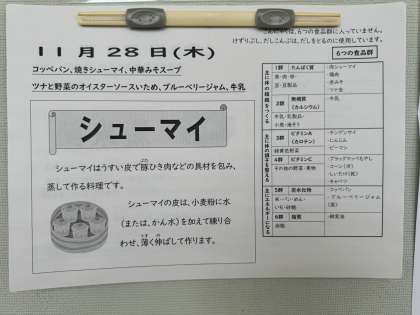 11月28日(木)
コッペパン、焼きシューマイ、中華みそスープ
ツナと野菜のオイスターソースいため、ブルーベリージャム、牛乳
シューマイ
シューマイはうすい皮で豚ひき肉などの具材を包み、
蒸して作る料理です。
シューマイの皮は、小麦粉に水
(または、かん水)を加えて練り合
わせ、薄く伸ばして作ります。
6つの食品群に入っていません。
けずりぶし、だしこんぶは、だしをとるのに使用しています。
6つの食品群
主に体の組織をつくる
1群 たんぱく質
魚・肉・卵・
豆・豆製品
・肉シューマイ
・鶏肉
・赤みそ
・ツナ
2群 無機質
(カルシウム)
牛乳・乳製品・
小魚・海そう
・牛乳
3群 ビタミンA
(カロテン)
緑黄色野菜
・チンゲンサイ
・にんじん
・ピーマン
4群 ビタミンC
その他の野菜・果物
・ブラックマッペもやし
・コーン(冷)
・しいたけ(乾)
・キャベツ
主にエネルギーになる
5群 炭水化物
米・パン・めん・
いも・砂糖
・コッペパン
・ブルーベリージャム
6群 脂質
油脂
・綿実油